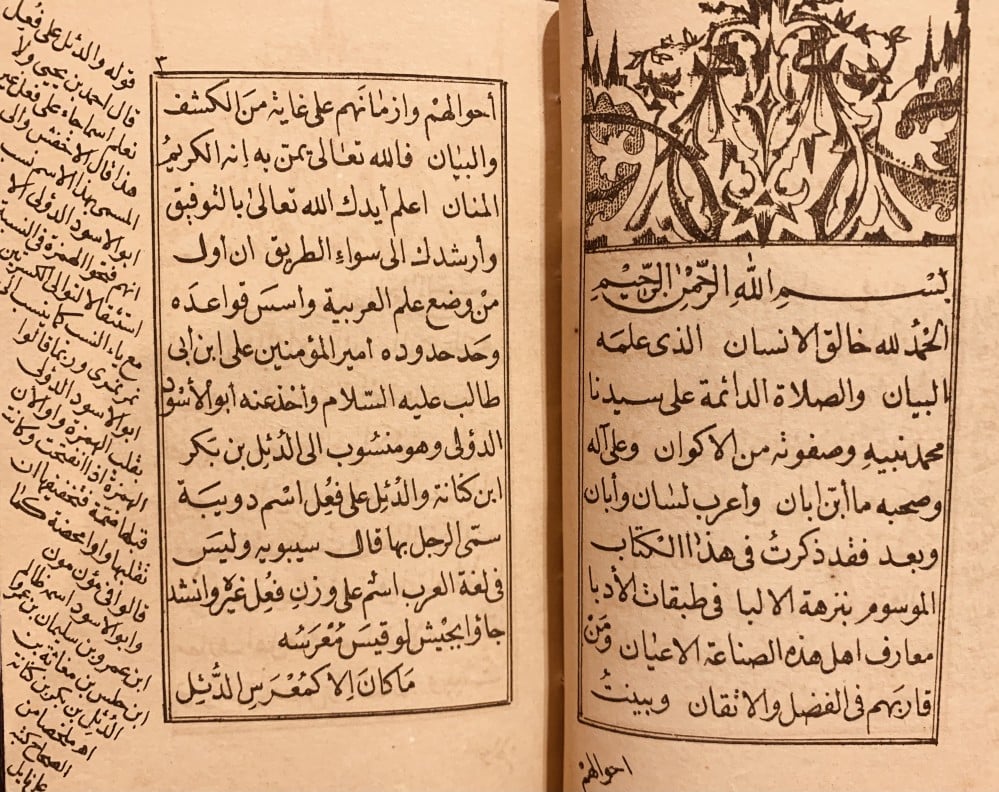 بسم الله الرحمن الرحيم
الحمد لله خالق الانسان الذى علمه
البيان والصلاة الدائمة على سيدنا
محمد نبيه وصفوته من الاكوان وعلى آله
وصحبه ما أبن ابان وأعرب لسان وأبان
وبعد فقد ذكرت فى هذا الكتاب
الموسوم بنزهة الالبا فى طبقات الأدبا
معارف اهل هذه الصناعة الاعيان ومن
قاربهم فى الفضل والاتقان وبينت
احوالهم
٣
أحوالهم وازمانهم على غاية من الكشف
والبيان فالله تعالى يمن به انه الكريم
المنان اعلم أيدك الله تعالى بالتوفيق
وأرشدك الى سواء الطريق ان أول
من وضع علم العربية وأسس قواعده
وحد حدوده أمير المؤمنين على ابن أبى
طالب عليه السلام وأخذ عنه أبو الأسود
الدؤلى وهو منسوب الى الدئل بن بكر
ابن كنانة والدئل على فعل اسم دويبة
سمى الرجل بها قال سيبويه وليس
فى لغة العرب اسم على وزن فعل غيره وانشد
جاؤا بجيش لو قيس معرسه
ما كان الا كمعرس الدئل
قوله والدئل على فعل
قال احمد بن يحيى ولا
نعلم اسما جاء على فعل غير
هذا قال الاخفش والى
المسمى بهذا الاسم نسب
ابو الاسود الدؤلى الا
انهم فتحوا الهمزة فى النسبة
استثقالا لتوالى الكسرتين
مع ياء النسب كما ينسب الى
نمر نمرى وربما قالوا
ابو الاسود الدولى
بقلب الهمزة واوا لان
الهمزة اذا انفتحت وكانت
قبلها ضمة فتخفيفها ان
تقلبها واوا محضة كما
قالوا فى مؤن مون
وابو الاسود اسمه ظالم
ابن عمرو بن سليمان بن عمرو
ابن حلس بن نفاثة بن
الدئل بن بكر بن كنانة
اهـ ملخصا من
الصحاح كتبه